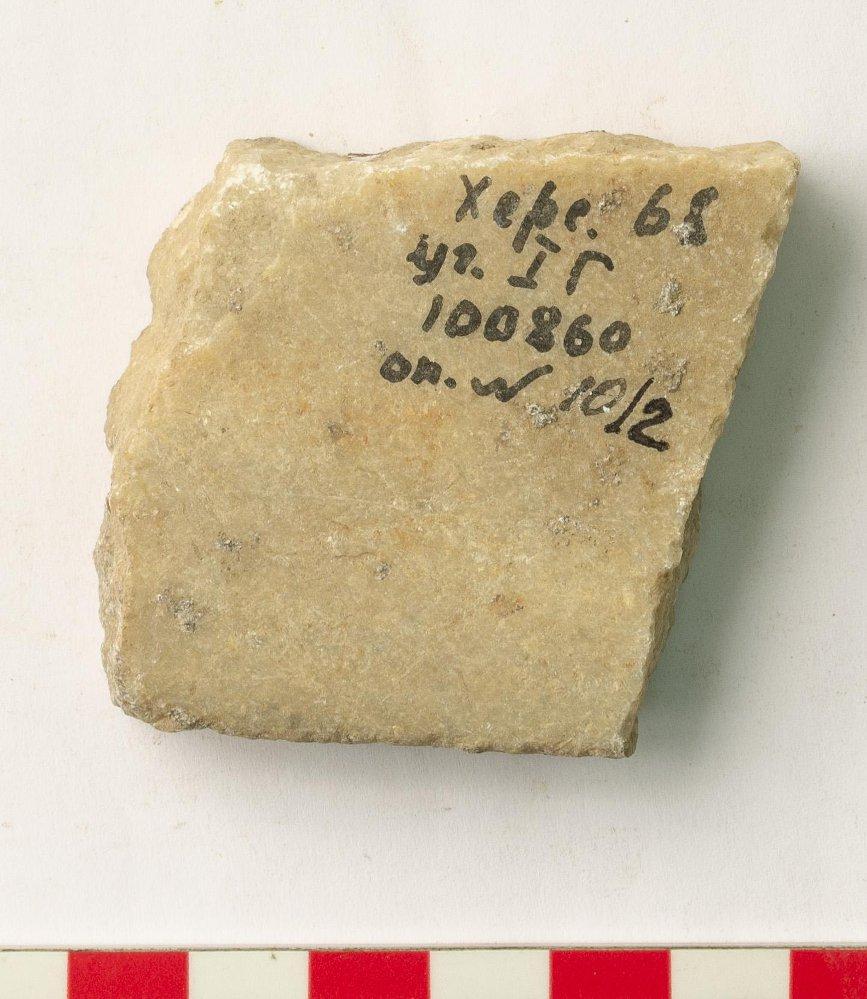 Херс. 68
уг. I Г
100860
оп. № 10/2